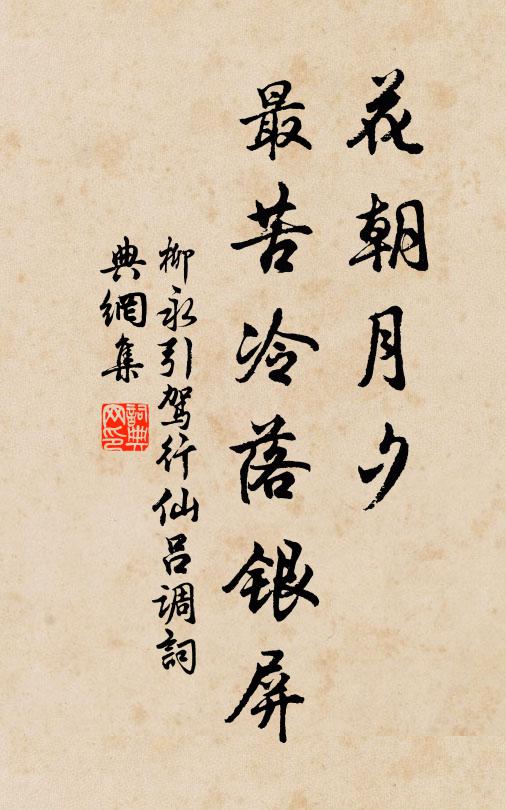 花朝月夕
最苦冷落银屏
柳永引驾行仙吕调詞
典網集
詞典网印